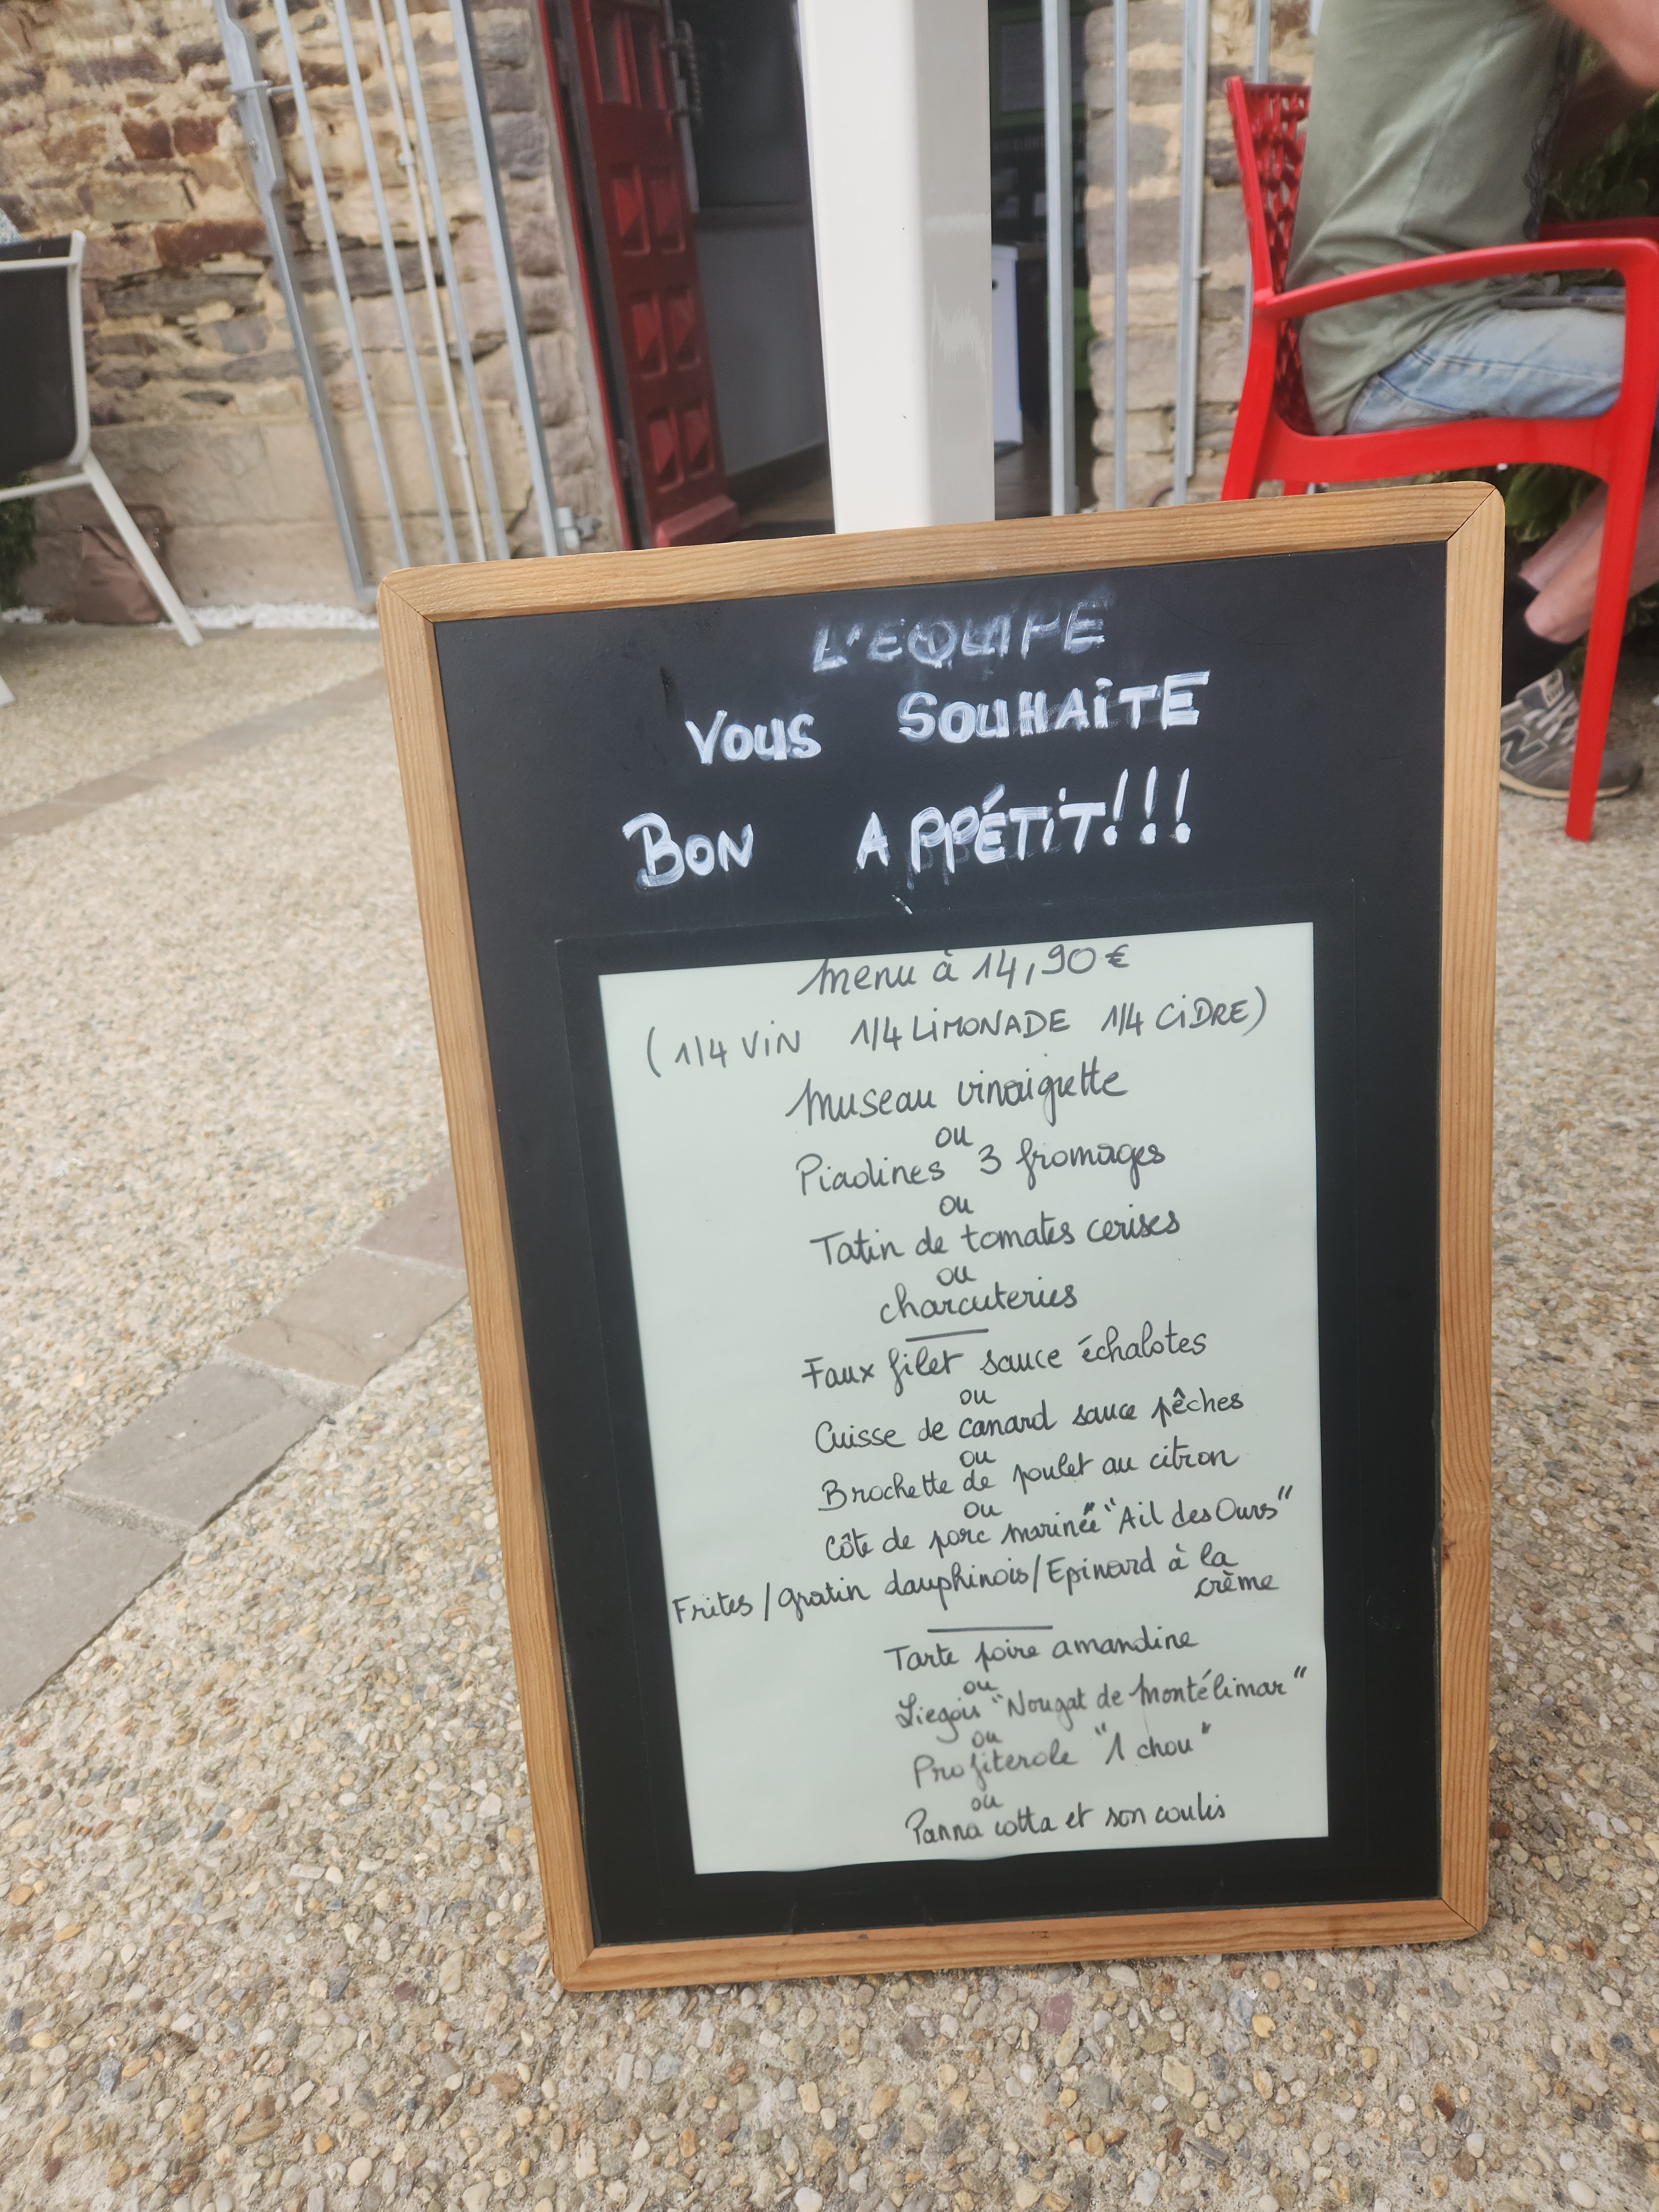 L'EQUIPE
VOUS SOUHAiTE
BON APPÉTiT!!!
Menu à 14,90€
(1/4 ViN 1/4 LiMONADE 1/4 CiDRE)
Museau vinaigrette
ou
Piadines 3 fromages
ou
Tatin de tomates cerises
ou
charcuteries
Faux filet sauce échalotes
ou
Cuisse de canard sauce pêches
ou
Brochette de poulet au citron
ou
Côte de porc marinée "Ail des Ours"
Frites / gratin dauphinois / Epinard à la
crème
Tarte poire amandine
ou
Liegois "Nougat de Montélimar"
ou
Profiterole "1 chou"
ou
Panna cotta et son coulis